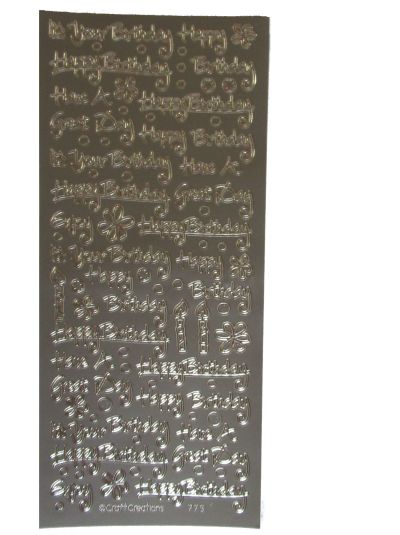 It's Your Birthday Happy
Happy Birthday Birthday
Have A Happy Birthday
Great Day Happy Birthday
It's Your Birthday Have A
Happy Birthday Great Day
Enjoy Happy Birthday
It's Your Birthday Happy
Happy Birthday
Birthday
Happy Birthday
Have A Happy Birthday
Great Day Happy Birthday
It's Your Birthday Have A
Happy Birthday Great Day
Enjoy Happy Birthday
© Craft Creations 773